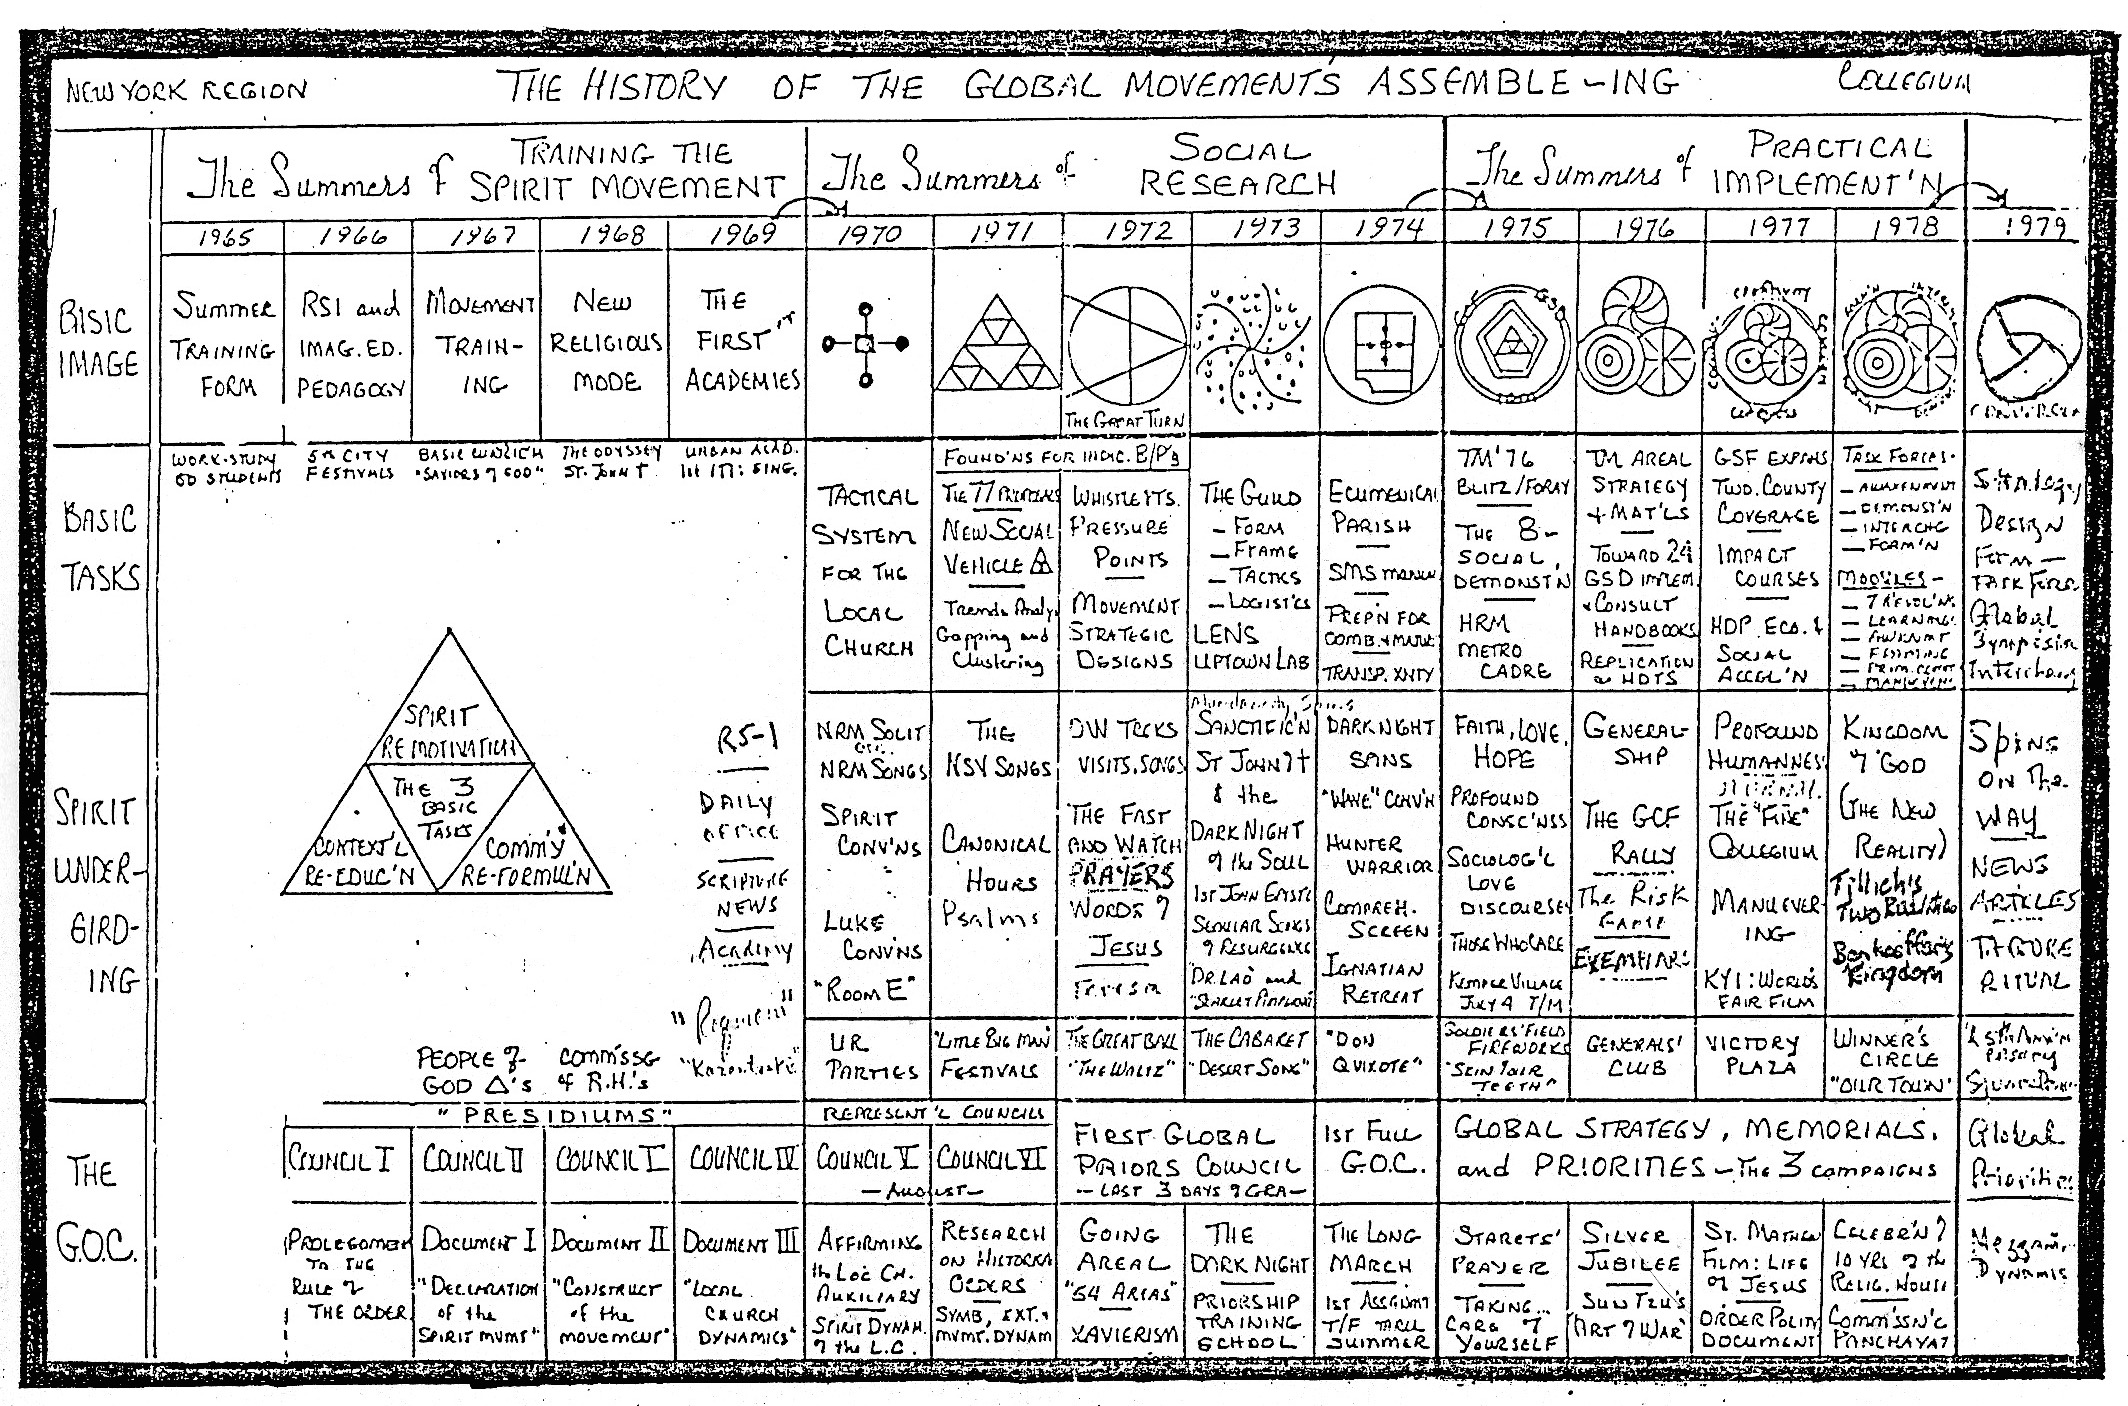 NEW YORK REGION
THE HISTORY OF THE GLOBAL MOVEMENTS ASSEMBLE-ING
COLLEGIUM
The Summers of TRAINING THE SPIRIT MOVEMENT
The Summers of SOCIAL RESEARCH
The Summers of PRACTICAL IMPLEMENT'N
1965 1966 1967 1968 1969 1970 1971 1972 1973 1974 1975 1976 1977 1978 1979
BISIC
IMAGE
Summer
TRAINING
FORM
RSI and
IMAG. ED.
PEDAGOGY
MOVEMENT
TRAIN-
ING
NEW
RELIGIOUS
MODE
THE
FIRST
ACADEMIES
THE GREAT TURN
GSD
BASIC
TASKS
WORK-STUDY
60 STUDENTS
5TH CITY
FESTIVALS
THE ODYSSEY
ST. JOHN T
URBAN ACAD.
TACTICAL
SYSTEM
FOR THE
LOCAL
CHURCH
FOUND'NS FOR INDIC. B/P's
THE 77 PROPOSALS
NEW SOCIAL
VEHICLE
Trends Analy
Gapping and
Clustering
WHISTLE PTS.
PRESSURE
POINTS
MOVEMENT
STRATEGIC
DESIGNS
THE GUILD
- FORM
- FRAME
- TACTICS
- LOGISTICS
LENS
UPTOWN LAB
ECUMENICAL
PARISH
SMS MANUU
PREP'N FOR
TRANSP. XNTY
TM '76
BLITZ/FORAY
THE 8-
SOCIAL
DEMONST'N
HRM
METRO
CADRE
TM AREAL
STRATEGY
+ MAT'LS
TOWARD 24
GSD IMPLEM.
+ CONSULT
HANDBOOKS
REPLICATION
HDTS
GSF EXPANS
TWO. COUNTY
COVERAGE
IMPACT
COURSES
HDP ECO. &
SOCIAL
ACCEL'N
TASK FORCES-
- DEMONST'N
- INTERCHG
- FORM'N
MODULES-
Strategy
Design
Form-
TASK FORC.
Global
Symposium
Interchang
SPIRIT
UNDER-
GIRD-
ING
SPIRIT
REMOTIVATION
THE 3
BASIC
TASKS
CONTEXT'L
RE-EDUC'N
COMM'Y
RE-FORMUL'N
RS-1
DAILY
OFFICE
SCRIPTURE
NEWS
Academy
PEOPLE of
GOD △'s
COMMISSG
of R.H.'s
NRM SOLIT
NRM SONGS
SPIRIT
CONV'NS
LUKE
CONV'NS
"ROOM E"
THE
NSV SONGS
CANONICAL
HOURS
Psalms
OW TREKS
VISITS, SONGS
THE FAST
AND WATCH
PRAYERS
WORDS of
JESUS
Teresa
SANCTIFIC'N
ST JOHN
& the
DARK NIGHT
of the SOUL
1ST JOHN
SECULAR SONGS
of RESURGENCE
DR. LAO and
DARK NIGHT
"WAVE" CONV'N
HUNTER
WARRIOR
COMPREH.
SCREEN
IGNATIAN
RETREAT
FAITH, LOVE,
HOPE
PROFOUND
CONSC'NSS
SOCIOLOG'L
LOVE
DISCOURSE
THOSE WHO CARE
KEMPER VILLAGE
JULY 4 T/M
GENERAL-
SHIP
THE GCF
RALLY
The RISK
GAME
EXEMPLARS
PROFOUND
HUMANNESS
THE "FIRE"
COLLEGIUM
MANUEVER-
ING
KYI: WORLD'S
FAIR FILM
KINGDOM
of GOD
(THE NEW
REALITY)
Tillich's
TWO REALITIES
Bonhoeffer's
Kingdom
SPINS
ON THE
WAY
NEWS
ARTICLES
TAGORE
RITUAL
UR
PARTIES
"LITTLE BIG MAN"
FESTIVALS
THE GREAT BALL
"THE WALTZ"
THE CABARET
"DESERT SONG"
"DON
QUIXOTE"
SOLDIERS' FIELD
FIREWORKS
"SKIN YOUR
TEETH"
GENERALS'
CLUB
VICTORY
PLAZA
WINNER'S
CIRCLE
"OUR TOWN"
THE
G.O.C.
"PRESIDIUMS"
REPRESENT'L COUNCILS
COUNCIL I
COUNCIL II
COUNCIL I
COUNCIL IV
COUNCIL V
COUNCIL VI
- AUGUST -
FIRST GLOBAL
PRIORS COUNCIL
- LAST 3 DAYS of GRA -
1ST FULL
G.O.C.
GLOBAL STRATEGY, MEMORIALS,
and PRIORITIES - THE 3 CAMPAIGNS
Global
Priorities
PROLEGOMEN
TO THE
RULE of
THE ORDER
DOCUMENT I
"DECLARATION
of the
SPIRIT MVMT"
DOCUMENT II
"CONSTRUCT
of the
MOVEMENT"
DOCUMENT III
"LOCAL
CHURCH
DYNAMICS"
AFFIRMING
th LOC CH.
AUXILIARY
SPIRIT DYNAM.
of the L.C.
RESEARCH
ON HISTORICA
ORDERS
SYMB, EXT. &
MVMT. DYNAM
GOING
AREAL
"54 AREAS"
XAVIERISM
THE
DARK NIGHT
PRIORSHIP
TRAINING
SCHOOL
THE LONG
MARCH
1ST ASSGNMT
T/F THRU
SUMMER
STARETS'
PRAYER
TAKING
CARE of
YOURSELF
SILVER
JUBILEE
SUN TZU'S
"ART of WAR"
ST. MATHEW
FILM: LIFE
of JESUS
ORDER POLITY
DOCUMENT
CELEBR'N of
10 YRS of the
RELIG. HOUSE
COMM'SSN'G
PANCHAYAT
DYNAMIS